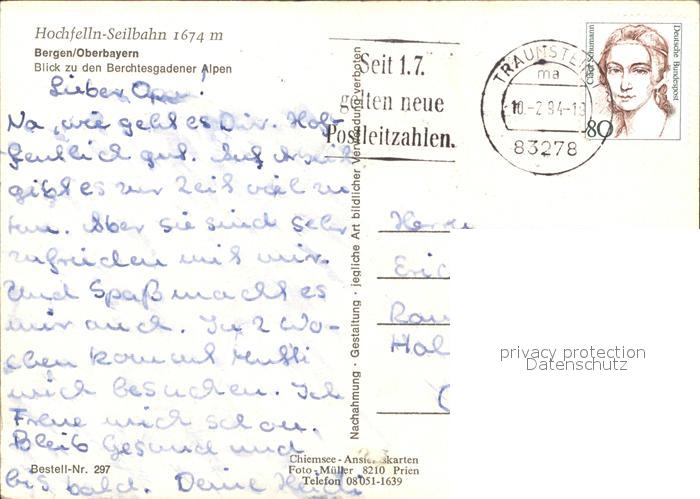 Hochfelln-Seilbahn 1674 m
Bergen/Oberbayern
Blick zu den Berchtesgadener Alpen
Lieber Opa!
Na, wie geht es Dir. Hof-
fentlich gut. Auf Arbeit
gibt es zur Zeit viel zu
tun. Aber sie sind sehr
zufrieden mit mir.
Und Spaß macht es
mir auch. In 2 Wo-
chen kommt Mutti
mich besuchen. Ich
Freue mich schon.
Bleib Gesund und
bis bald. Deine Heidi
Bestell-Nr. 297
Nachahmung · Gestaltung · jegliche Art bildlicher Verwendung verboten
Seit 1.7.
gelten neue
Postleitzahlen.
TRAUNSTEIN
ma
10.-2.94-18
83278
Clara Schumann
Deutsche Bundespost
80
Herrn
Eric
Hal
privacy protection
Datenschutz
Chiemsee-Ansichtskarten
Foto-Müller 8210 Prien
Telefon 08051-1639